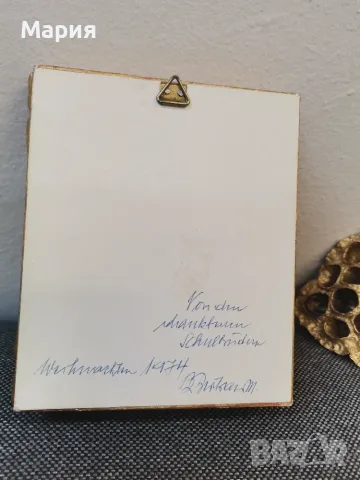 Мария
Von den
dankbaren
Schulkindern
Weihnachten 1974
bazar.bg